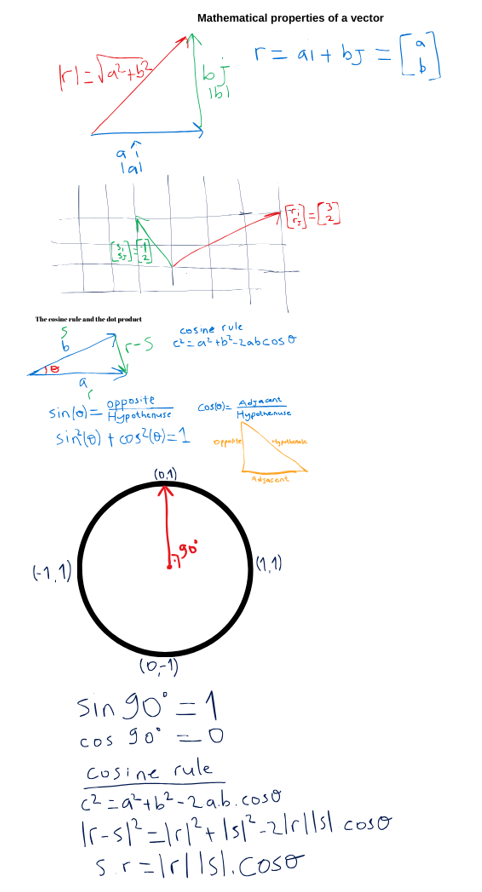 Mathematical properties of a vector
|r| = √a²+b²
r = ai + bj = [a b]
bj
|b|
a î
|a|
[rᵢ rⱼ] = [3 2]
[sᵢ sⱼ] = [-1 2]
The cosine rule and the dot product
s
b
r-s
θ
a
r
cosine rule
c² = a² + b² - 2ab cos θ
sin(θ) = opposite / Hypothenuse
cos(θ) = Adjacent / Hypothenuse
sin²(θ) + cos²(θ) = 1
Opposite
Hypothenuse
Adjacent
(0,1)
90°
(-1,1)
(1,1)
(0,-1)
sin 90° = 1
cos 90° = 0
cosine rule
c² = a² + b² - 2a.b.cosθ
|r-s|² = |r|² + |s|² - 2|r||s| cosθ
s.r = |r||s|.cosθ